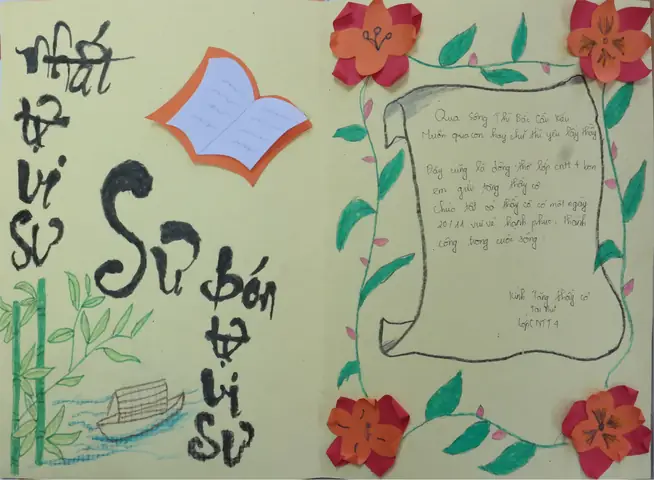 nhất
tự
vi
sư
Sư
bán
tự
vi
sư
Qua sông Thì Bắc Cầu Kiều
Muốn qua con hay chữ thì yêu lấy thầy
Đây cũng là dòng thơ lớp CNTT 4 bọn
em gửi tặng thầy cô
Chúc tất cả thầy cô có một ngày
20/11 vui vẻ hạnh phúc. Thành
công trong cuộc sống
Kính Tặng thầy cô
Tập thể
Lớp CNTT 4